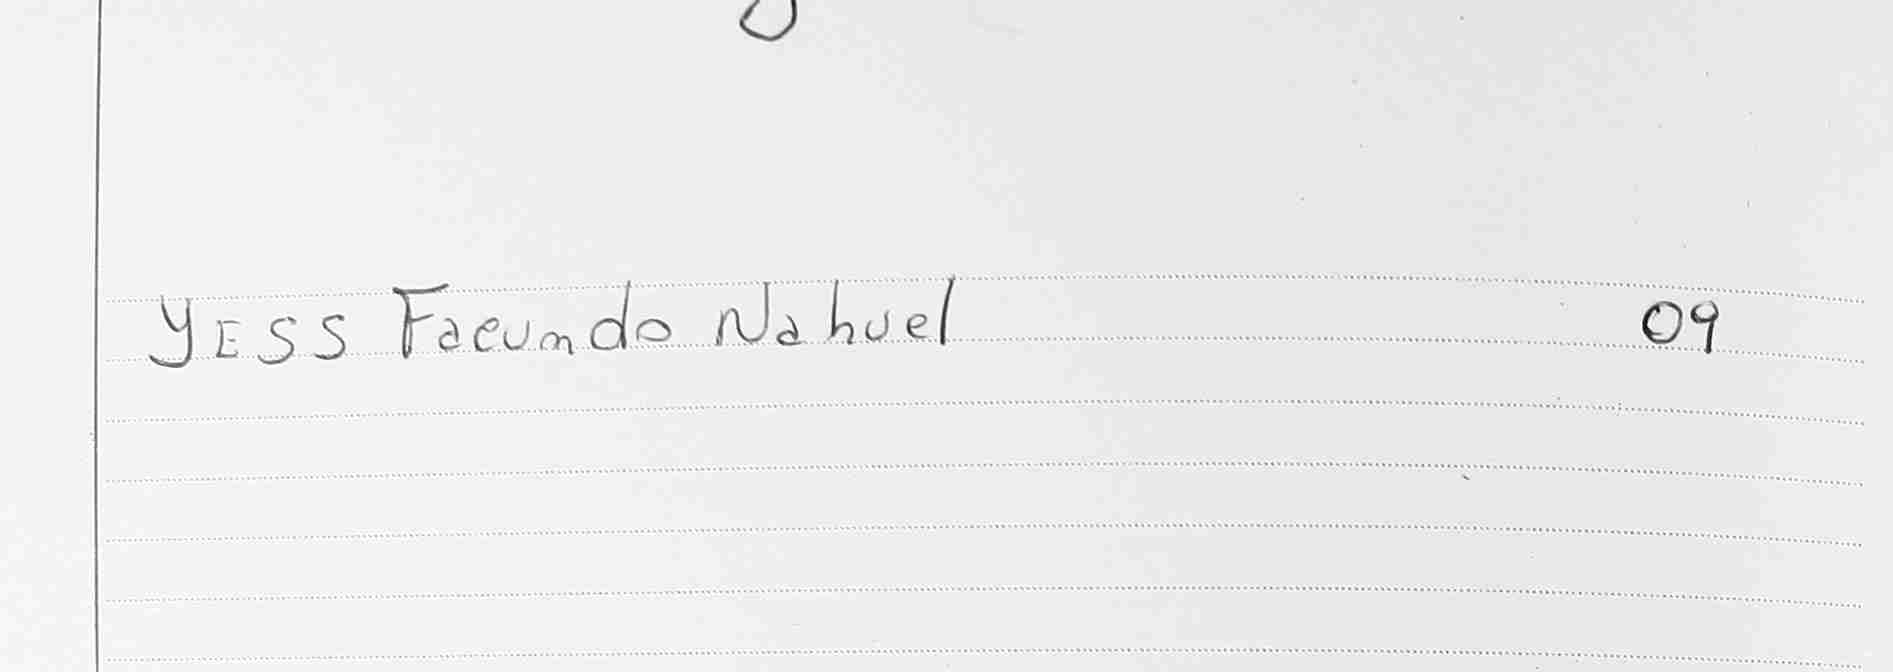 YESS Facundo Nahuel 09